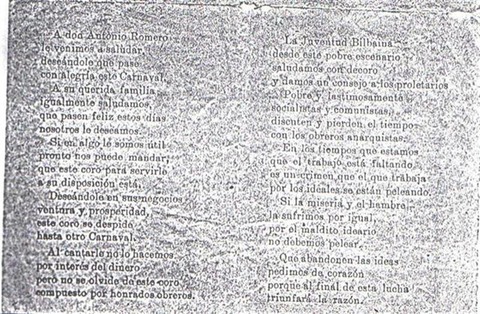 A don Antonio Romero
le venimos a saludar
deseándole que pase
con alegría este Carnaval.
A su querida familia
igualmente saludamos,
que pasen feliz estos días
nosotros le deseamos.
Si en algo le somos útil
pronto nos puede mandar;
que este coro para servirle
a su disposición está.
Deseándole en sus negocios
ventura y prosperidad,
este coro se despide
hasta otro Carnaval.
Al cantarle no lo hacemos
por interés del dinero
pero no se olvide de este coro
compuesto por honrados obreros.
La Juventud Bilbaina
desde este pobre escenario
saludamos con decoro
y damos un consejo a los proletarios
Pobre y lastimosamente
socialistas y comunistas,
discuten y pierden el tiempo
con los obreros anarquistas.
En los tiempos que estamos
que el trabajo está faltando
es un crimen que el que trabaja
por los ideales se están peleando.
Si la miseria y el hambre
la sufrimos por igual,
por el maldito ideario
no debemos pelear.
Que abandonen las ideas
pedimos de corazón
porque al final de esta lucha
triunfará la razón.